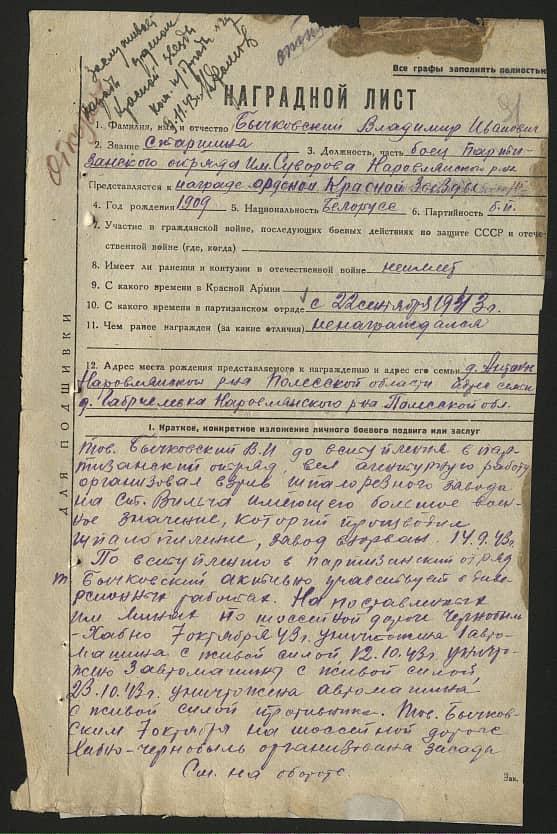 Заслуживает
Красной звезды
9.11.43
Все графы заполнять полностью
НАГРАДНОЙ ЛИСТ
1. Фамилия, имя и отчество Бычковский Владимир Иванович
2. Звание Старшина 3. Должность, часть боец парти-
занского отряда им. Суворова Наровлянского р-на
Представляется к награде орденом Красной Звезды
4. Год рождения 1909 5. Национальность Белорусс 6. Партийность б.п.
7. Участие в гражданской войне, последующих боевых действиях по защите СССР и отече-
ственной войне (где, когда)
8. Имеет ли ранения и контузии в отечественной войне неимеет
9. С какого времени в Красной Армии
10. С какого времени в партизанском отряде с 22 сентября 1943 г.
11. Чем ранее награжден (за какие отличия) ненаграждался
12. Адрес места рождения представляемого к награждению и адрес его семьи д.
Наровлянского р-на Полесской области семьи
д. Наровлянского р-на Полесской обл.
I. Краткое, конкретное изложение личного боевого подвига или заслуг
Тов. Бычковский В.И до вступления в пар-
тизанский отряд, вел агентурную работу
организовал взрыв шпалорезного завода
на ст. Вильча имеющего большое воен-
ное значение, который производил
шпалопиление, завод взорван 14.9.43г.
По вступлению в партизанский отряд
т. Бычковский активно участвует в диве-
рсионных работах. На поставленных
им минах по шоссейной дороге Чернобыль
-Хабно 7 октября 43г. уничтожена 1 авто-
машина с живой силой, 12.10.43г. уничто-
жено 3 автомашины с живой силой,
23.10.43г. уничтожена автомашина
с живой силой противника. Тов. Бычков-
ским 7 октября на шоссейной дороге
Хабно-Чернобыль организована засада
См. на обороте
Зак.
ДЛЯ ПОДШИВКИ